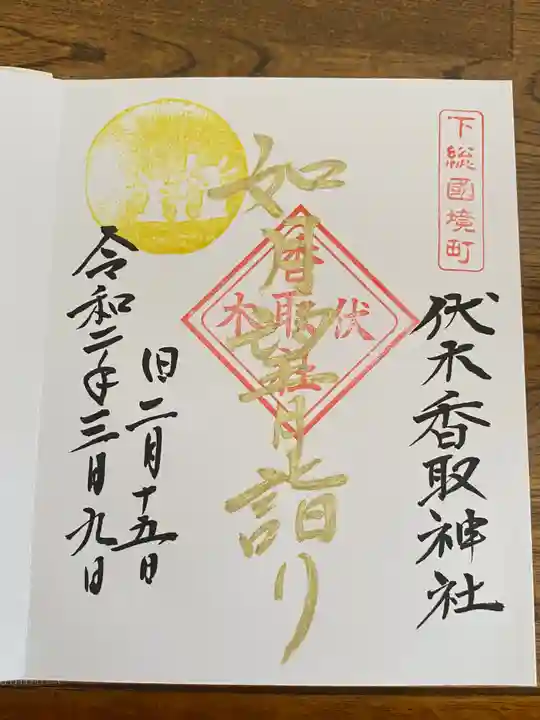 下総國境町
伏木香取神社
如月望月詣り
香取社
伏木
旧二月十五日
令和二年三月九日